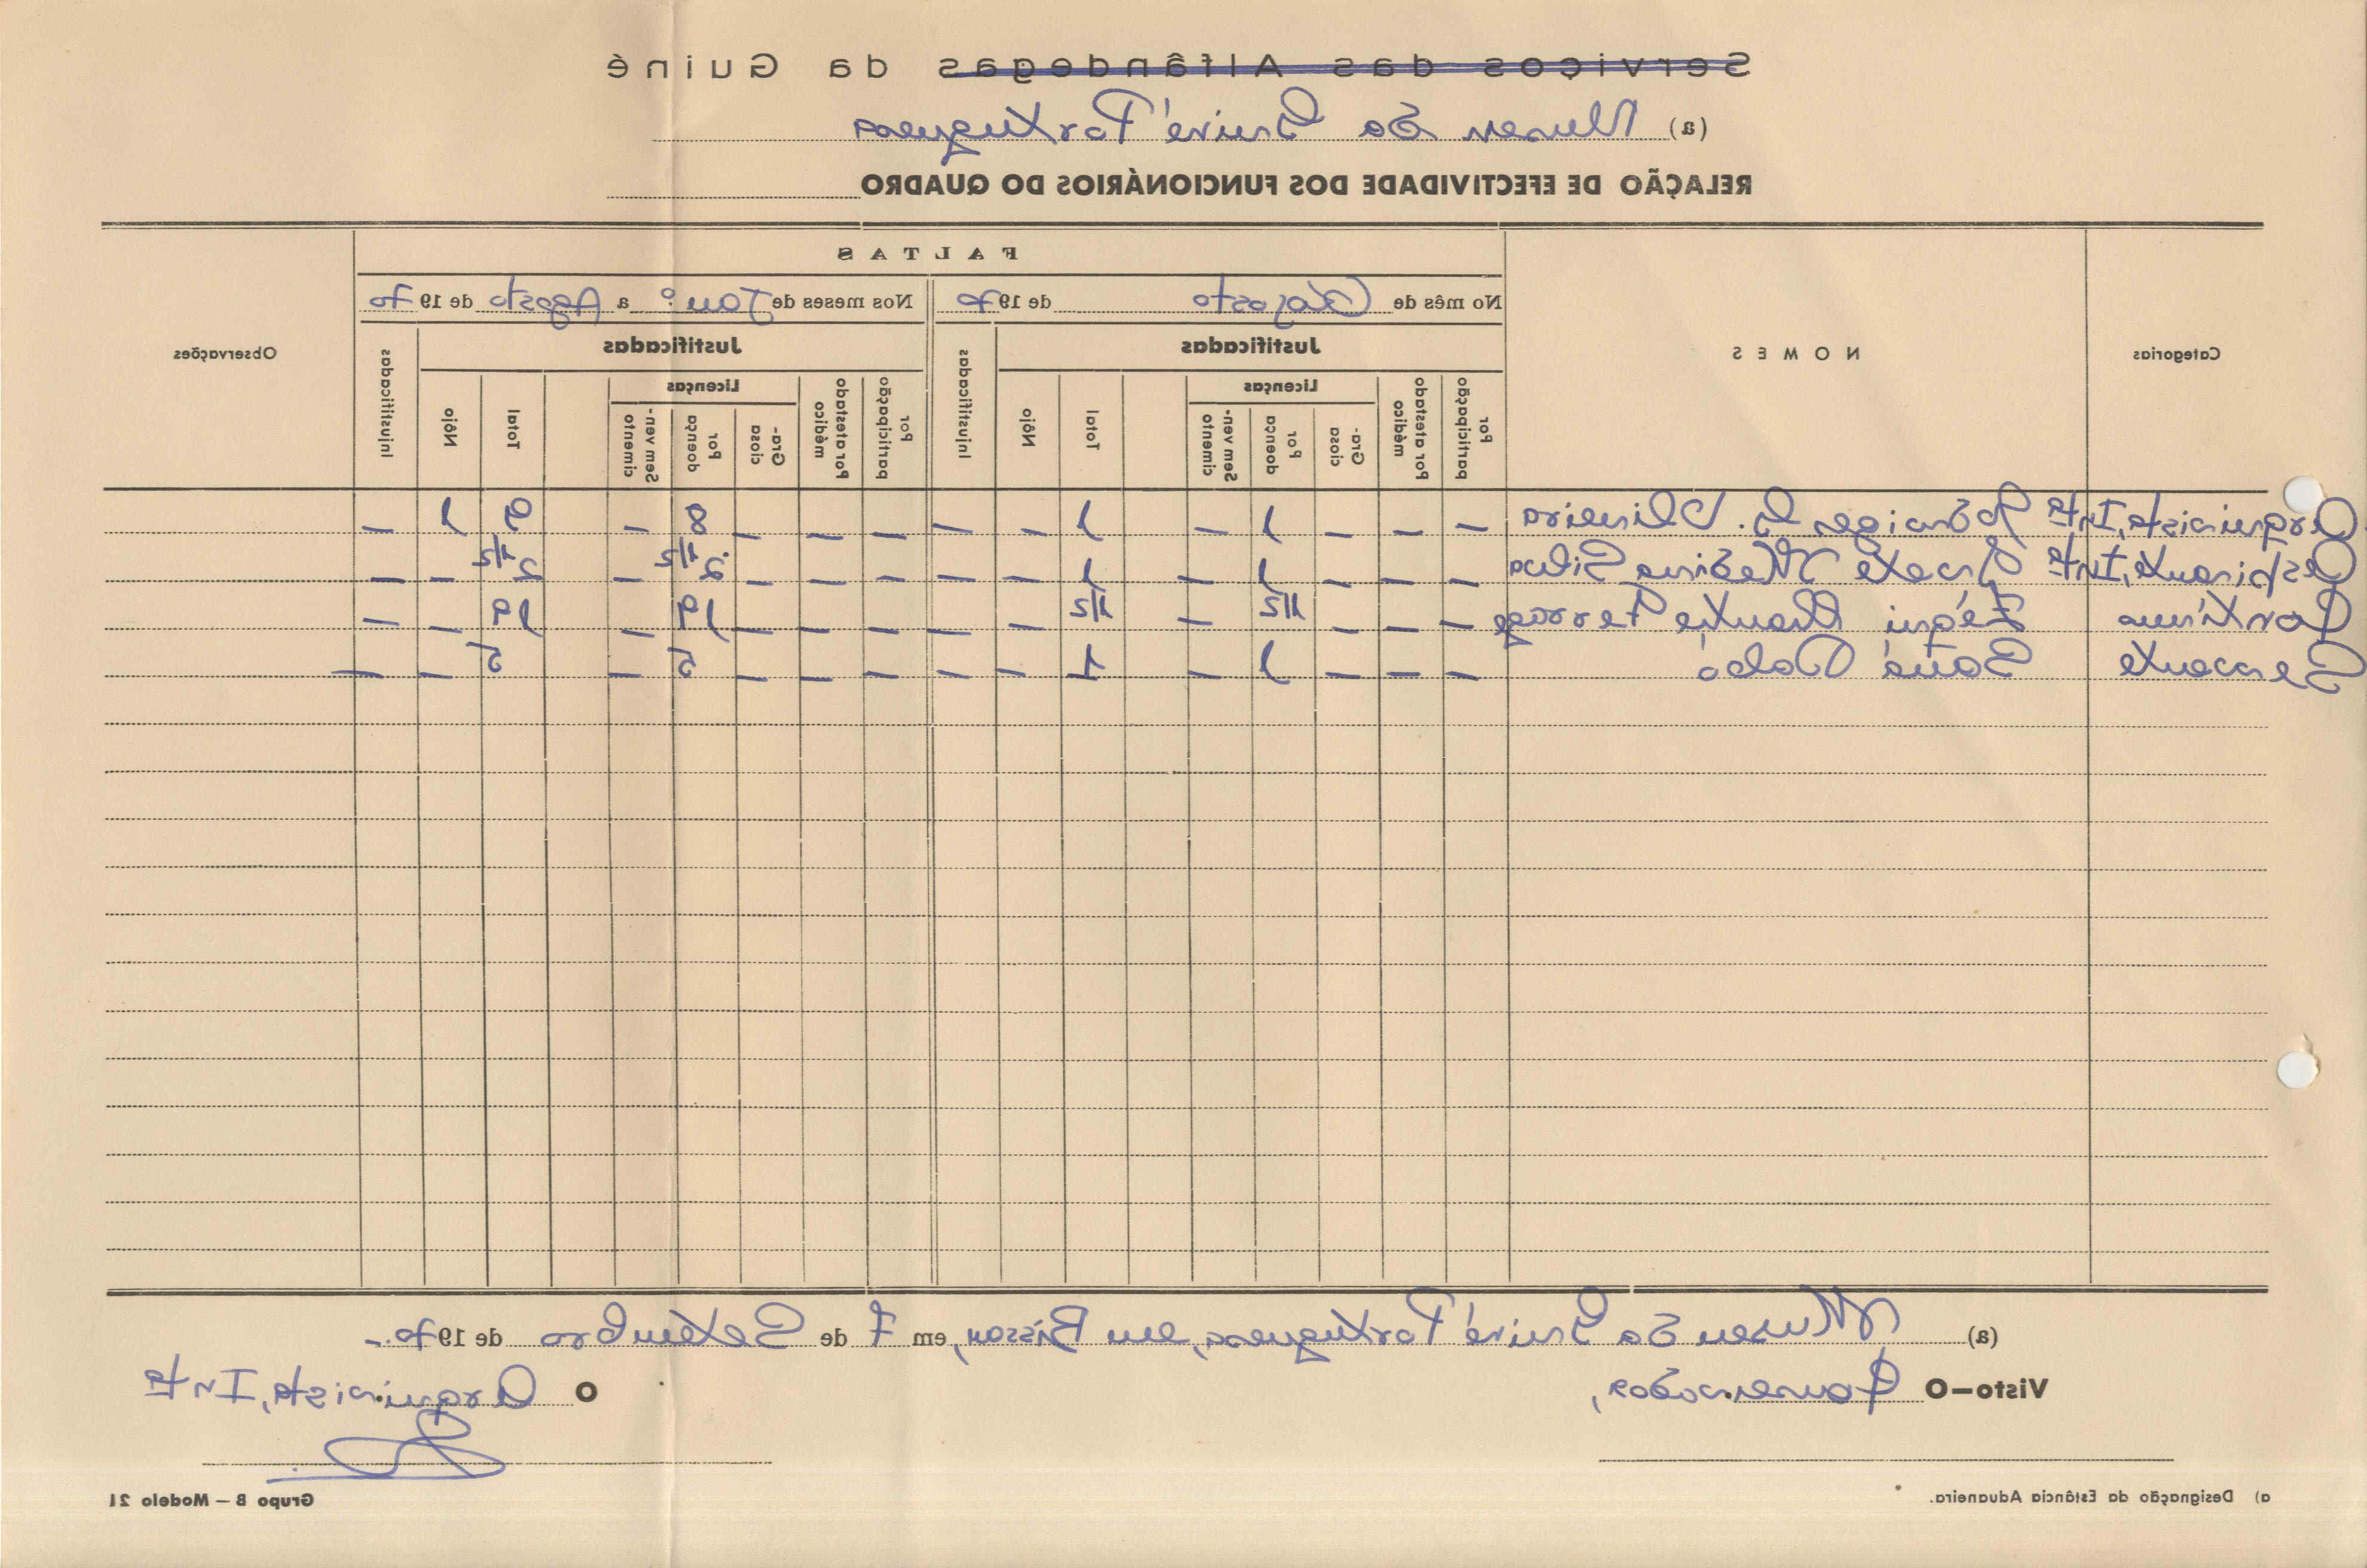 Serviços das Alfândegas da Guiné
(a) Museu da Guiné Portuguesa
RELAÇÃO DE EFECTIVIDADE DOS FUNCIONÁRIOS DO QUADRO
Categorias
NOMES
FALTAS
Observações
No mês de Agosto de 1970
Nos meses de Jan.º a Agosto de 1970
Justificadas
Injustificadas
Justificadas
Injustificadas
Por participação
Por atestado médico
Licenças
Graciosa
Por doença
Sem vencimento
Total
Nôjo
Por participação
Por atestado médico
Licenças
Graciosa
Por doença
Sem vencimento
Total
Nôjo
Arquivista, Intº G. Oliveira – – – 1 – 1 – – – – – 8 – 9 1 –
Aspirante, Intº Silva – – – 1 – 1 – – – – – 2 1/2 – 2 1/2 – –
– – – 1/2 – 1/2 – – – – – 19 – 19 – –
Servente – – – 1 – 1 – – – – – 5 – 5 – –
(a) Museu da Guiné Portuguesa, em Bissau, em 7 de Setembro de 1970.-
Visto—O
O Arquivista, Intº
a) Designação da Estância Aduaneira.
Grupo B — Modelo 21